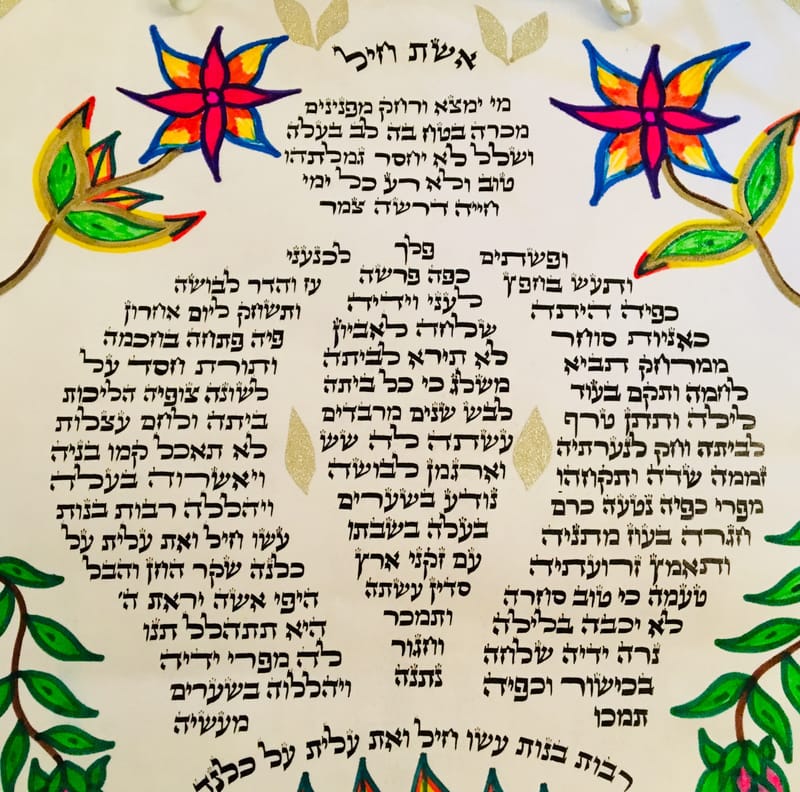 אשת חיל
מי ימצא ורחק מפנינים
מכרה בטח בה לב בעלה
ושלל לא יחסר גמלתהו
טוב ולא רע כל ימי
חייה דרשה צמר
ופשתים
ותעש בחפץ
כפיה היתה
כאניות סוחר
ממרחק תביא
לחמה ותקם בעוד
לילה ותתן טרף
לביתה וחק לנערתיה
זממה שדה ותקחהו
מפרי כפיה נטעה כרם
חגרה בעוז מתניה
ותאמץ זרועתיה
טעמה כי טוב סחרה
לא יכבה בלילה
נרה ידיה שלחה
בכישור וכפיה
תמכו
פלך
כפה פרשה
לעני וידיה
שלחה לאביון
לא תירא לביתה
משלג כי כל ביתה
לבש שנים מרבדים
עשתה לה שש
וארגמן לבושה
נודע בשערים
בעלה בשבתו
עם זקני ארץ
סדין עשתה
ותמכר
וחגור
נתנה
לכנעני
עז והדר לבושה
ותשחק ליום אחרון
פיה פתחה בחכמה
ותורת חסד על
לשונה צופיה הליכות
ביתה ולחם עצלות
לא תאכל קמו בניה
ויאשרוה בעלה
ויהללה רבות בנות
עשו חיל ואת עלית על
כלנה שקר החן והבל
היפי אשה יראת ה'
היא תתהלל תנו
לה מפרי ידיה
ויהללוה בשערים
מעשיה
רבות בנות עשו חיל ואת עלית על כלנה